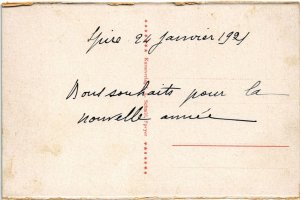 Spire 24 Janvier 1921
Bons souhaits pour la
nouvelle année